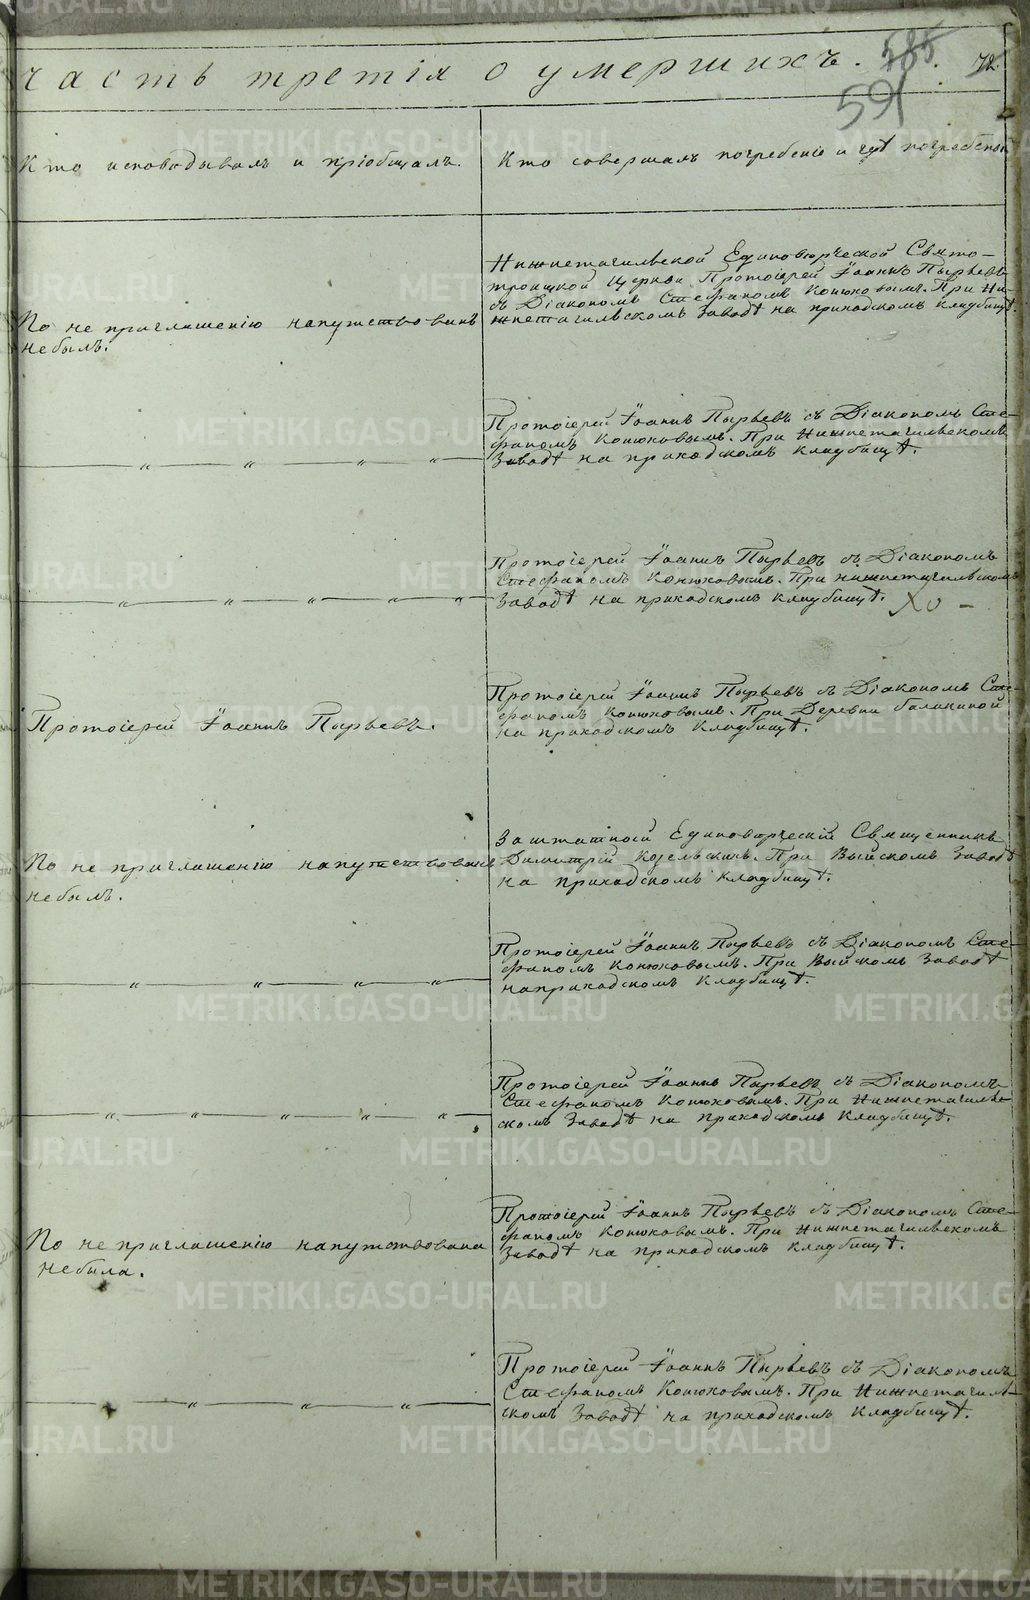 часть третія о умершихъ. 585. 72.
591
Кто исповѣдывалъ и пріобщалъ.
Кто совершалъ погребеніе и гдѣ погребены
Нижнетагильской Единовѣрческой Свято-
троицкой Церкви Протоіерей Іоаннъ Пырьевъ
съ Діакономъ Стефаномъ Конюховымъ. При Ни-
жнетагильскомъ Заводѣ на приходскомъ кладбищѣ.
По не приглашенію напутствованъ
небылъ.
Протоіерей Іоаннъ Пырьевъ съ Діакономъ Сте-
фаномъ Конюховымъ. При Нижнетагильскомъ
Заводѣ на приходскомъ кладбищѣ.
— „ — „ — „ — „ —
Протоіерей Іоаннъ Пырьевъ съ Діакономъ
Стефаномъ Конюховымъ. При нижнетагильскомъ
Заводѣ на приходскомъ кладбищѣ.
— „ — „ — „ — „ — „ —
Протоіерей Іоаннъ Пырьевъ.
Протоіерей Іоаннъ Пырьевъ съ Діакономъ Сте-
фаномъ Конюховымъ. При Деревни балакиной
на приходскомъ Кладбищѣ.
По не приглашенію напутствованъ
небылъ.
Заштатной Единовѣрческій Священникъ
Димитрій Козельскихъ. При Выйскомъ Заводѣ
на приходскомъ кладбищѣ.
Протоіерей Іоаннъ Пырьевъ съ Діакономъ Сте-
фаномъ Конюховымъ. При Выйскомъ Заводѣ
наприходскомъ Кладбищѣ.
— „ — „ — „ — „ —
Протоіерей Іоаннъ Пырьевъ съ Діакономъ
Стефаномъ Конюховымъ. При Нижнетагиль-
скомъ Заводѣ на приходскомъ Кладбищѣ.
— „ — „ — „ — „ — „ —
Протоіерей Іоаннъ Пырьевъ съ Діакономъ Сте-
фаномъ Конюховымъ. При Нижнетагильскомъ
Заводѣ на приходскомъ кладбищѣ.
По не приглашенію напутствована
небыла.
Протоіерей Іоаннъ Пырьевъ съ Діакономъ
Стефаномъ Конюховымъ. При Нижнетагиль-
скомъ Заводѣ на приходскомъ Кладбищѣ.
— „ — „ — „ — „ —
METRIKI.GASO-URAL.RU